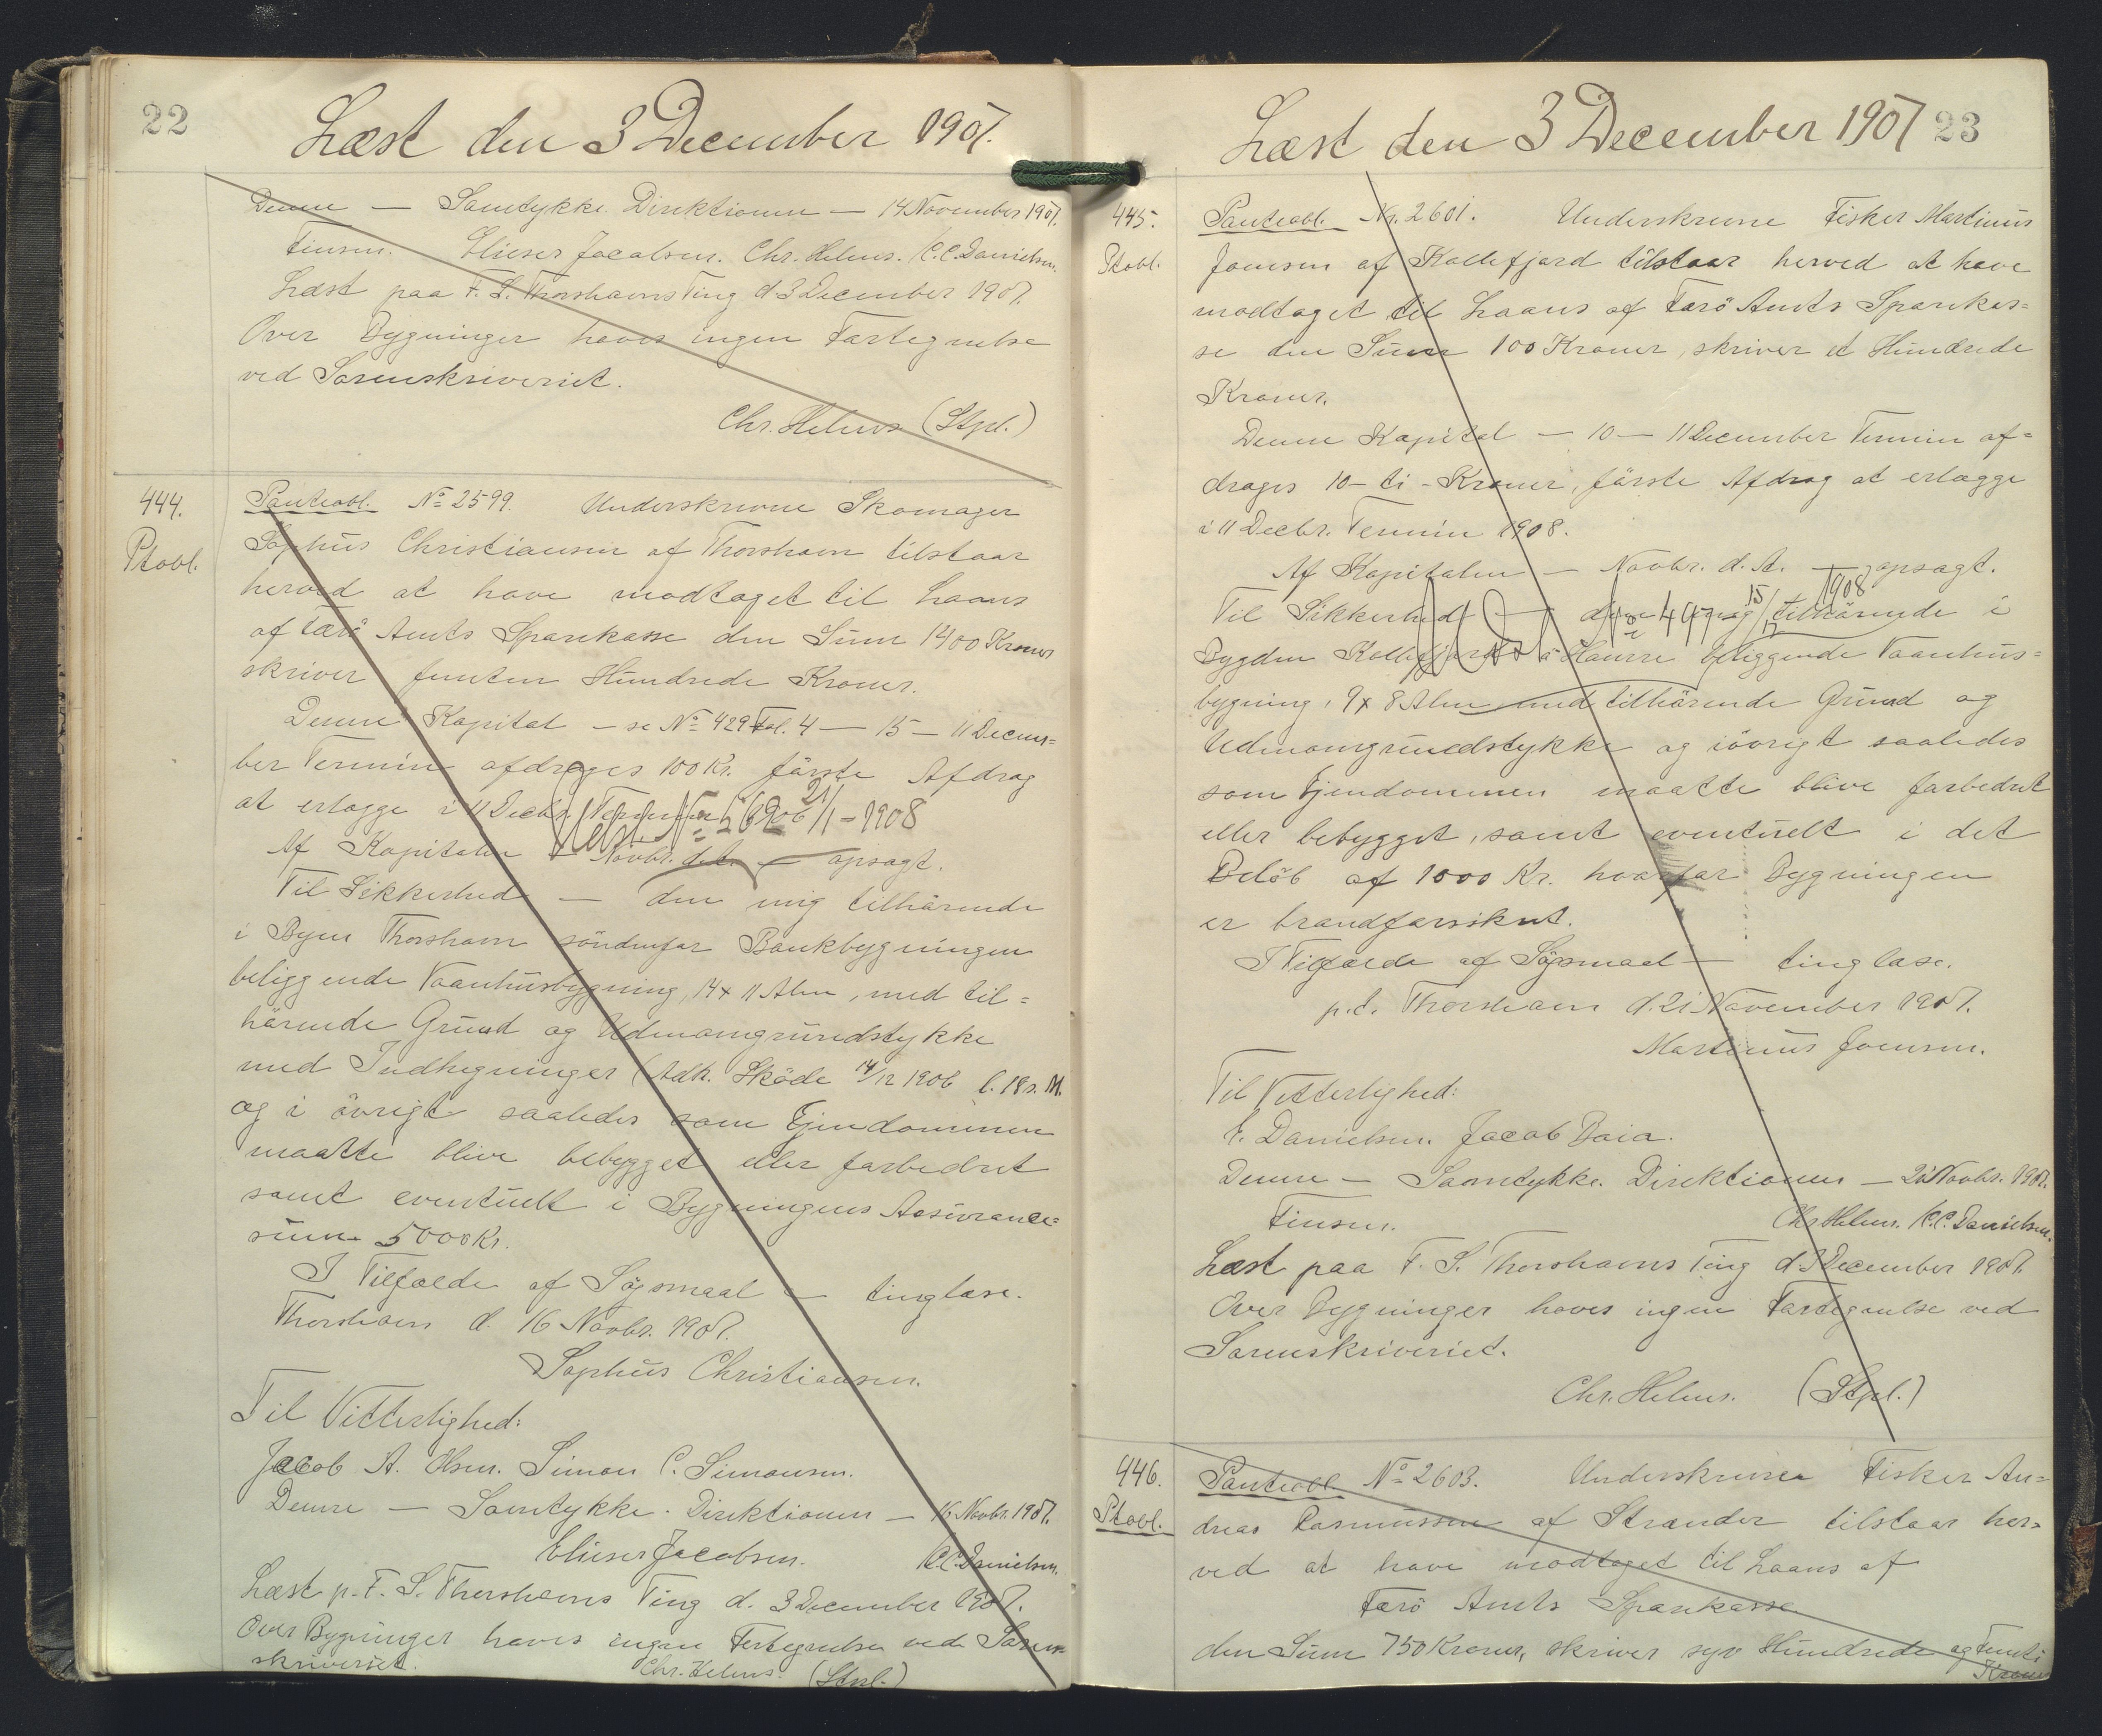 22
Læst den 3 December 1907.
Denne — Samtykke. Direktionen — 14 November 1907.
Finsen. Elieser Jacobsen. Chr. Helms. C.C. Danielsen.
Læst paa F. S. Thorshavns Ting d 3 December 1907.
Over Bygninger haves ingen Fortegnelse
ved Sorenskriveriet.
Chr. Helms (Stpl.)
444.
Ptobl.
Panteobl. No 2599. Underskrevne Skomager
Sophus Christiansen af Thorshavn tilstaar
herved at have modtaget til Laans
af Færö Amts Sparekasse den Sum 1400 Kroner
skriver fjorten Hundrede Kroner.
Denne Kapital — se No 429 Fol. 4 — 15 — 11 Decem=
ber Termin afdrages 100 Kr. förste Afdrag
at erlægge i 11 Decbr. Termin
21/1 - 1908
Af Kapitalen — Novbr. d.A. — opsagt.
Til Sikkerhed — den mig tilhörende
i Byen Thorshavn söndenfor Bankbygningen
beliggende Vaanhusbygning, 14 x 11 Alen, med til=
hörende Grund og Udmarngrundstykke
med Indhegninger (Adk. Sköde 14/12 1906 l. 18 s. M.
og i övrigt saaledes som Ejendommen
maatte blive bebygget eller forbedret
samt eventuelt i Bygningens Assurance=
sum 5000 Kr.
I Tilfælde af Søgsmaal — tinglæse.
Thorshavn d. 16 Novbr. 1907.
Sophus Christiansen.
Til Vitterlighed:
Jacob A. Olsen. Simon C. Simonsen.
Denne — Samtykke. Direktionen — 16 Novbr. 1907.
Elieser Jacobsen. C.C. Danielsen.
Læst p. F. S. Thorshavns Ting d. 3 December 1907.
Over Bygninger haves ingen Fortegnelse ved Soren
skriveriet. Chr. Helms. (Stpl.)
Læst den 3 December 1907
23
445.
Ptobl.
Panteobl. Nr. 2601. Underskrevne Fisker Martinus
Joensen af Kollefjord tilstaar herved at have
modtaget til Laans af Færö Amts Sparekas=
se den Sum 100 Kroner, skriver et Hundrede
Kroner.
Denne Kapital — 10 — 11 December Termin af=
drages 10 - ti - Kroner, förste Afdrag at erlægge
i 11 Decbr. Termin 1908.
Af Kapitalen — Novbr. d. A. — opsagt.
1908
Til Sikkerhed — tilhörende i
Bygden Kollefjord beliggende Vaanhus=
bygning, 9 x 8 Alen med tilhörende Grund og
Udmarngrundstykke og iövrigt saaledes
som Ejendommen maatte blive forbedret
eller bebygget, samt eventuelt i det
Belöb af 1000 Kr. hvorfor Bygningen
er brandforsikret.
I Tilfælde af Søgsmaal — tinglæse.
p.t. Thorshavn d. 21 November 1907.
Martinus Joensen.
Til Vitterlighed:
Danielsen. Jacob Daia.
Denne — Samtykke. Direktionen — Novbr. 1907.
Finsen. Chr. Helms. C.C. Danielsen.
Læst paa F. S. Thorshavns Ting d 3 December 1907.
Over Bygninger haves ingen Fortegnelse ved
Sorenskriveriet.
Chr. Helms. (Stpl.)
446.
Ptobl.
Panteobl. No 2603. Underskrevne Fisker An=
dreas Rasmussen af Strænder tilstaar her=
ved at have modtaget til Laans af
Færö Amts Sparekasse
den Sum 750 Kroner, skriver syv Hundrede og femti
Kroner